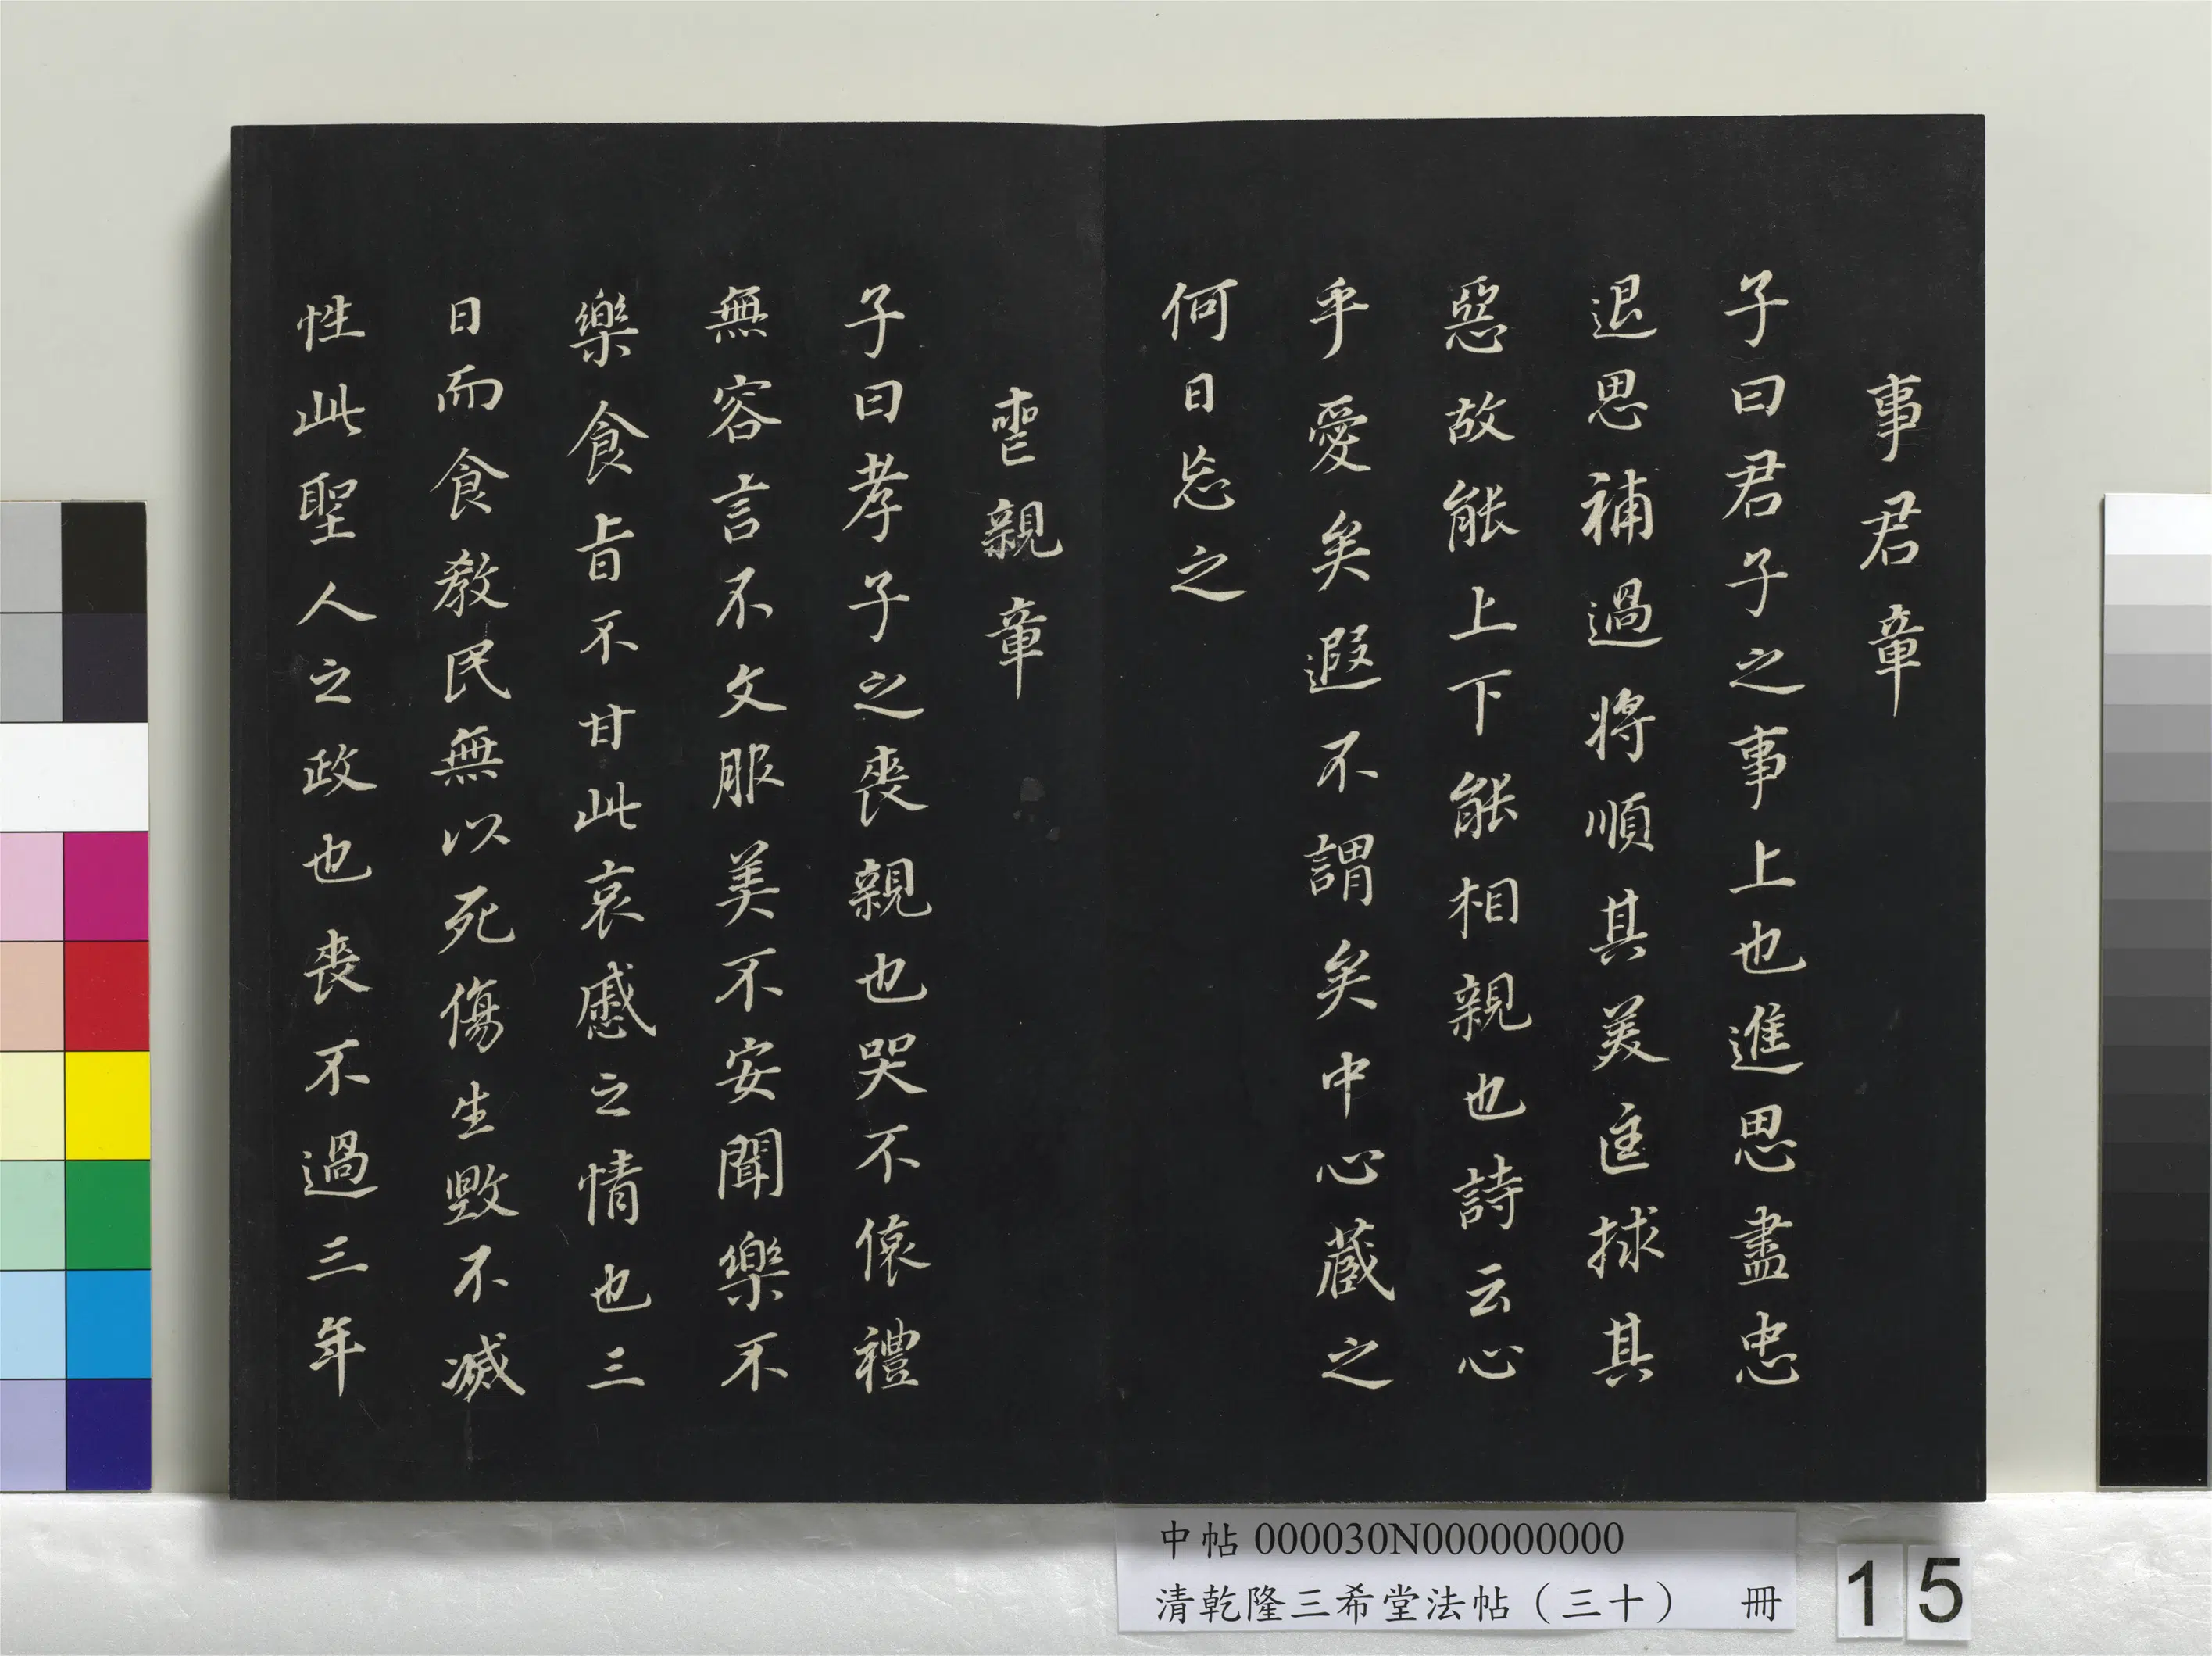 事君章
子曰君子之事上也進思盡忠
退思補過將順其美匡捄其
惡故能上下能相親也詩云心
乎愛矣遐不謂矣中心藏之
何日忘之
喪親章
子曰孝子之喪親也哭不偯禮
無容言不文服美不安聞樂不
樂食旨不甘此哀慼之情也三
日而食教民無以死傷生毀不滅
性此聖人之政也喪不過三年
中帖 000030N000000000
清乾隆三希堂法帖（三十） 冊
15